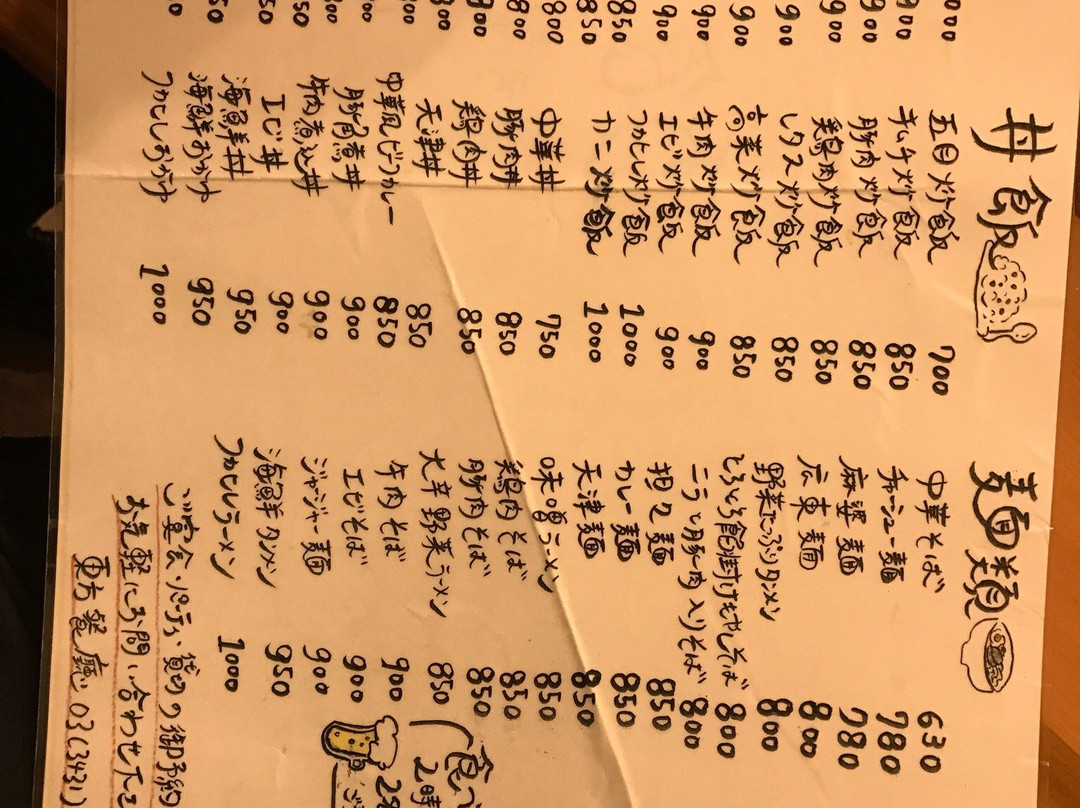 丼飯
五目炒飯 700
キムチ炒飯 850
豚肉炒飯 850
鶏肉炒飯 850
レタス炒飯 850
高菜炒飯 850
牛肉炒飯 900
エビ炒飯 900
フカヒレ炒飯 1000
カニ炒飯 1000
中華丼 750
豚肉丼 850
鶏肉丼 850
天津丼 850
中華風ビーフカレー 850
豚角煮丼 900
牛肉煮込丼 900
エビ丼 900
海鮮丼 950
海鮮おかゆ 950
フカヒレおかゆ 1000
麺類
中華そば 630
チャーシュー麺 780
麻婆麺 780
広東麺 800
野菜たっぷりタンメン 800
とろとろ餡掛けもやしそば 800
ニラと豚肉入りそば 800
担々麺 850
カレー麺 850
天津麺 850
味噌ラーメン 850
鶏肉そば 850
豚肉そば 850
大辛野菜ラーメン 850
牛肉そば 900
エビそば 900
ジャージャー麺 900
海鮮タンメン 950
フカヒレラーメン 1000
食べ
2時
ご宴会・パーティー貸切り御予約
お気軽にお問い合わせ下さ
東方餐廳 03(3431)